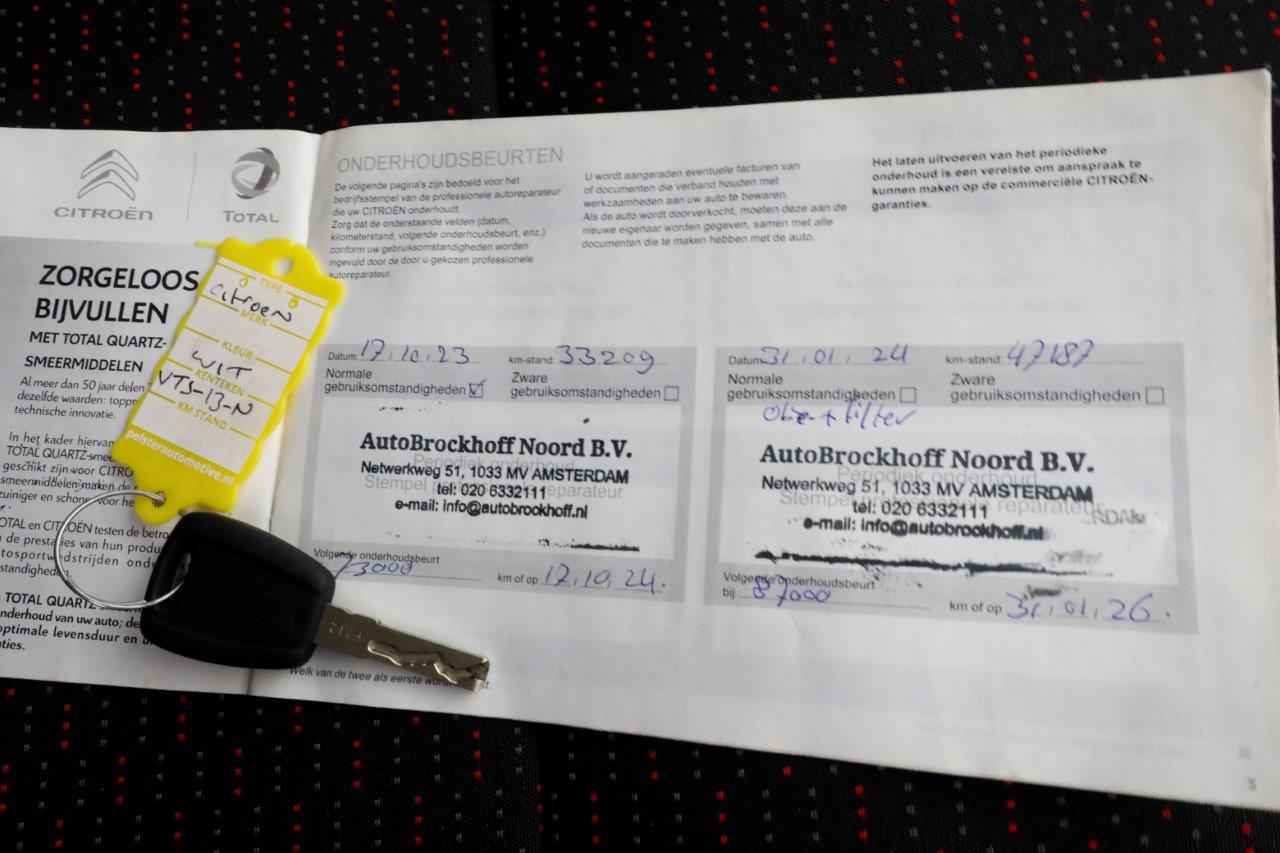 CITROËN
TOTAL
ZORGELOOS
BIJVULLEN
MET TOTAL QUARTZ-
SMEERMIDDELEN
Al meer dan 50 jaar delen
dezelfde waarden:
technische innovatie.
In het kader hiervan
TOTAL QUARTZ-smee
geschikt zijn voor CITRO
smeermiddelen maken de
zuiniger en schoner voor he
OTAL en CITROËN testen de betro
de prestaties van hun produ
tosportwedstrijden onde
standigheden
TOTAL QUARTZ
nderhoud van uw auto; de
optimale levensduur en
ties.
TYPE
Citroen
MERK
KLEUR
WIT
KENTEKEN
VTS-13-N
KM STAND
pelsterautomotive.nl
ONDERHOUDSBEURTEN
De volgende pagina's zijn bedoeld voor het
bedrijfsstempel van de professionele autoreparateur
die uw CITROËN onderhoudt.
Zorg dat de onderstaande velden (datum,
kilometerstand, volgende onderhoudsbeurt, enz.)
conform uw gebruiksomstandigheden worden
ingevuld door de door u gekozen professionele
autoreparateur.
U wordt aangeraden eventuele facturen van
of documenten die verband houden met
werkzaamheden aan uw auto te bewaren.
Als de auto wordt doorverkocht, moeten deze aan de
nieuwe eigenaar worden gegeven, samen met alle
documenten die te maken hebben met de auto.
Het laten uitvoeren van het periodieke
onderhoud is een vereiste om aanspraak te
kunnen maken op de commerciële CITROËN-
garanties.
Datum: 17.10.23 km-stand: 33209
Normale gebruiksomstandigheden Zware gebruiksomstandigheden
Periodiek onderhoud
Stempel reparateur
AutoBrockhoff Noord B.V.
Netwerkweg 51, 1033 MV AMSTERDAM
tel: 020 6332111
e-mail: info@autobrockhoff.nl
Volgende onderhoudsbeurt
73000 km of op 17.10.24.
Datum: 31.01.24 km-stand: 47187
Normale gebruiksomstandigheden Zware gebruiksomstandigheden
+ filter
Periodiek onderhoud
Stempel reparateur
AutoBrockhoff Noord B.V.
Netwerkweg 51, 1033 MV AMSTERDAM
tel: 020 6332111
e-mail: info@autobrockhoff.nl
Volgende onderhoudsbeurt
bij 87000 km of op 31.01.26.
Welk van de twee als eerste
3